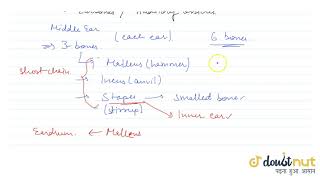 Middle Ear (each ear) 6 bones
⇒ 3-bones
short-chain
→ Malleus (hammer)
→ Incus (anvil)
→ Stapes → Smallest bone
(stirrup) → Inner ear
Eardrum ← Malleus
doubtnut
पढ़ना हुआ आसान